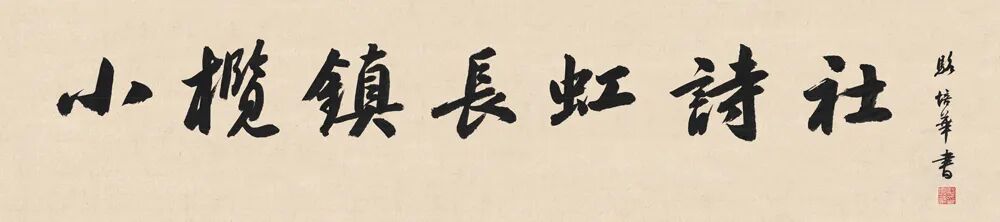 小欖鎮長虹詩社
駱培華書